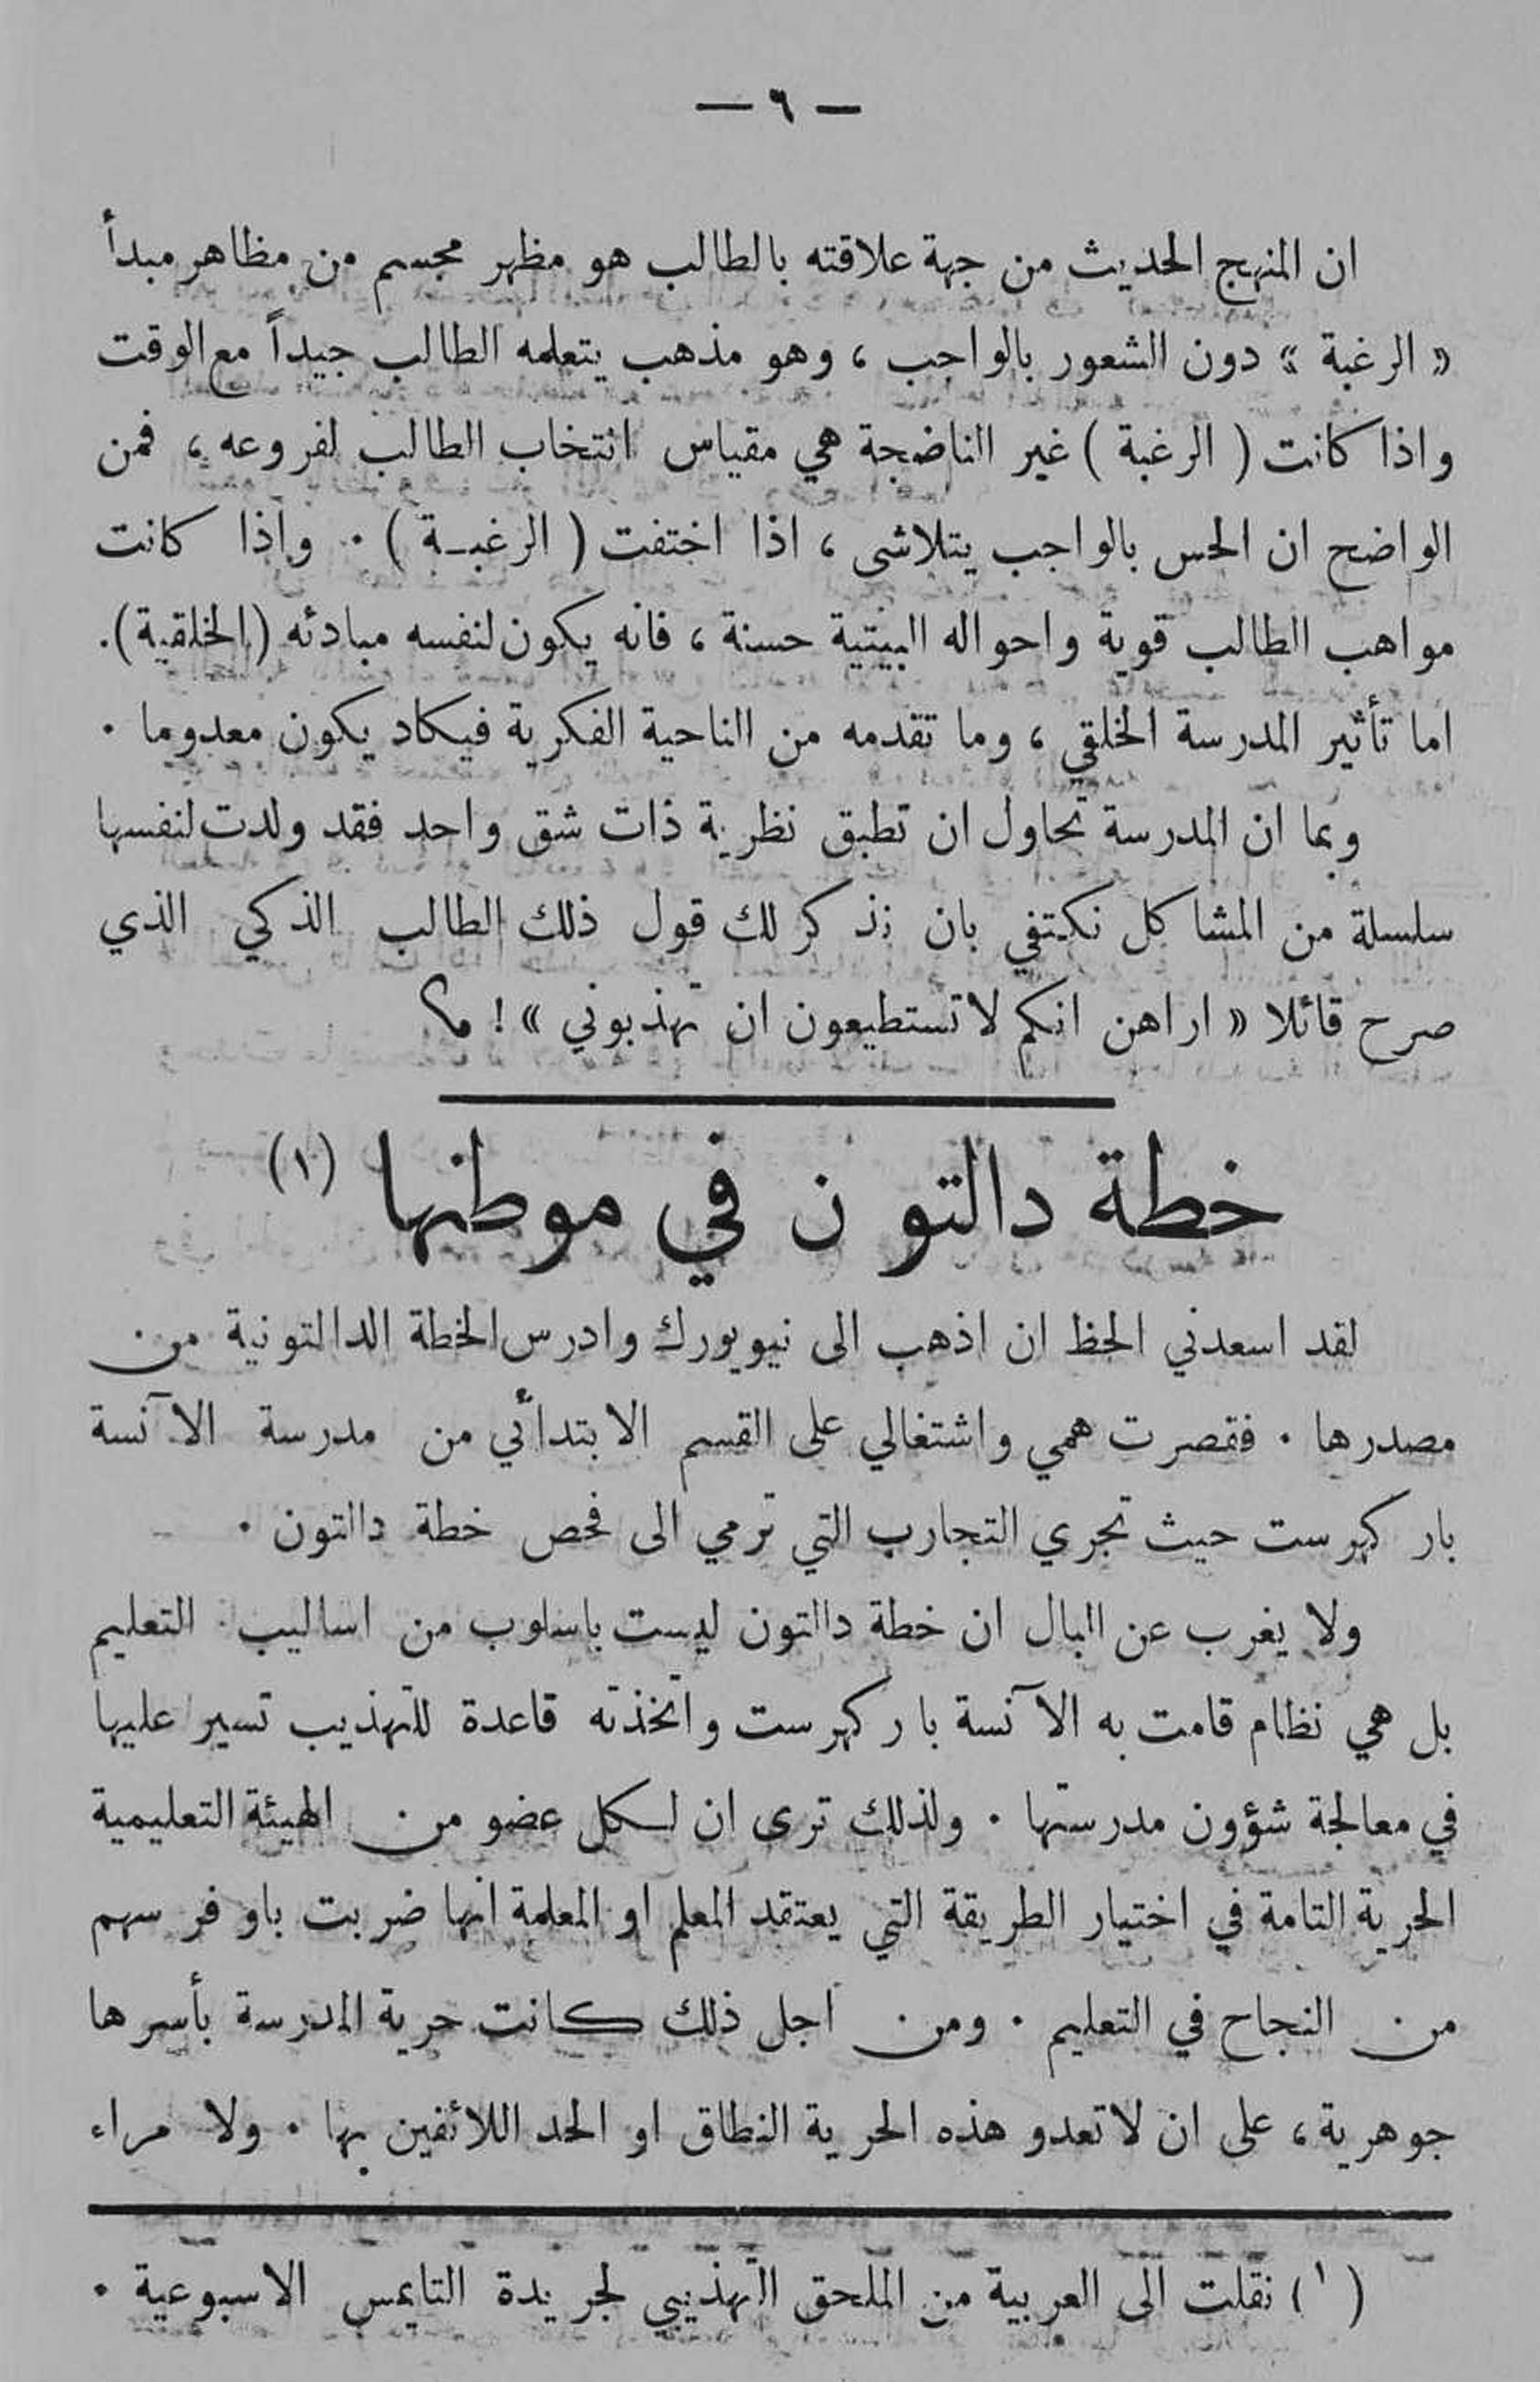 — ٦ —
ان المنهج الحديث من جهة علاقته بالطالب هو مظهر مجسم من مظاهر مبدأ
« الرغبة » دون الشعور بالواجب ، وهو مذهب يتعلمه الطالب جيداً مع الوقت
واذا كانت ( الرغبة ) غير الناضجة هي مقياس انتخاب الطالب لفروعه ، فمن
الواضح ان الحس بالواجب يتلاشى ، اذا اختفت ( الرغبـة ) . واذا كانت
مواهب الطالب قوية واحواله البيتية حسنة ، فانه يكون لنفسه مبادئه (الخلقية).
اما تأثير المدرسة الخلقي ، وما تقدمه من الناحية الفكرية فيكاد يكون معدوما .
وبما ان المدرسة تحاول ان تطبق نظرية ذات شق واحد فقد ولدت لنفسها
سلسلة من المشاكل نكتفي بان نذكر لك قول ذلك الطالب الذكي الذي
صرح قائلا « اراهن انكم لا تستطيعون ان تهذبوني » !
خطة دالتون في موطنها (١)
لقد اسعدني الحظ ان اذهب الى نيويورك وادرس الخطة الدالتونية من
مصدرها . فقصرت همي واشتغالي على القسم الابتدائي من مدرسة الآنسة
باركهرست حيث تجري التجارب التي ترمي الى فحص خطة دالتون .
ولا يغرب عن البال ان خطة دالتون ليست باسلوب من اساليب التعليم
بل هي نظام قامت به الآنسة باركهرست واتخذته قاعدة للتهذيب تسير عليها
في معالجة شؤون مدرستها . ولذلك ترى ان لكل عضو من الهيئة التعليمية
الحرية التامة في اختيار الطريقة التي يعتقد المعلم او المعلمة انها ضربت باوفر سهم
من النجاح في التعليم . ومن اجل ذلك كانت حرية المدرسة بأسرها
جوهرية ، على ان لا تعدو هذه الحرية النطاق او الحد اللائقين بها . ولا مراء
(١) نقلت الى العربية من الملحق التهذيبي لجريدة التايمس الاسبوعية .